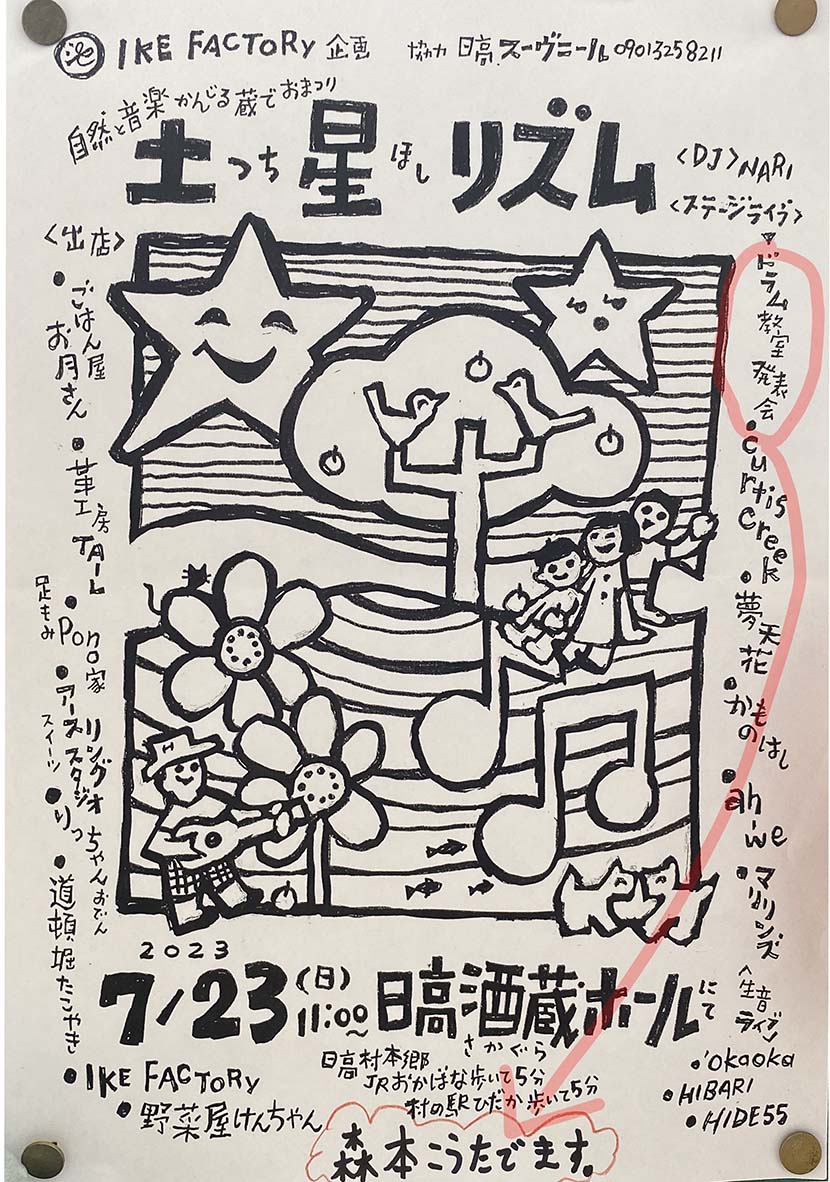 IKE FACTORY 企画
協力 日高 スーヴニール 09013258211
自然と音楽かんじる蔵でおまつり
土つち星ほしリズム
〈DJ〉NARI
〈ステージライブ〉
・ドラム教室発表会
・curtis creek
・夢天花
・かものはし
・ah-we
・マリリンズ
〈生音ライブ〉
・okaoka
・HIBARI
・HIDE55
〈出店〉
・ごはん屋お月さん
・革工房TAIL
足もみ
・Pono家
・アースタジオ
スイーツ
・りっ
リングスタちゃんおでん
・道頓堀たこやき
・IKE FACTORY
・野菜屋けんちゃん
2023
7/23(日)11:00〜日高酒蔵ホールにて
さかぐら
日高村本郷
JRおかばな歩いて5分
村の駅ひだか歩いて5分
森本こうたでます。